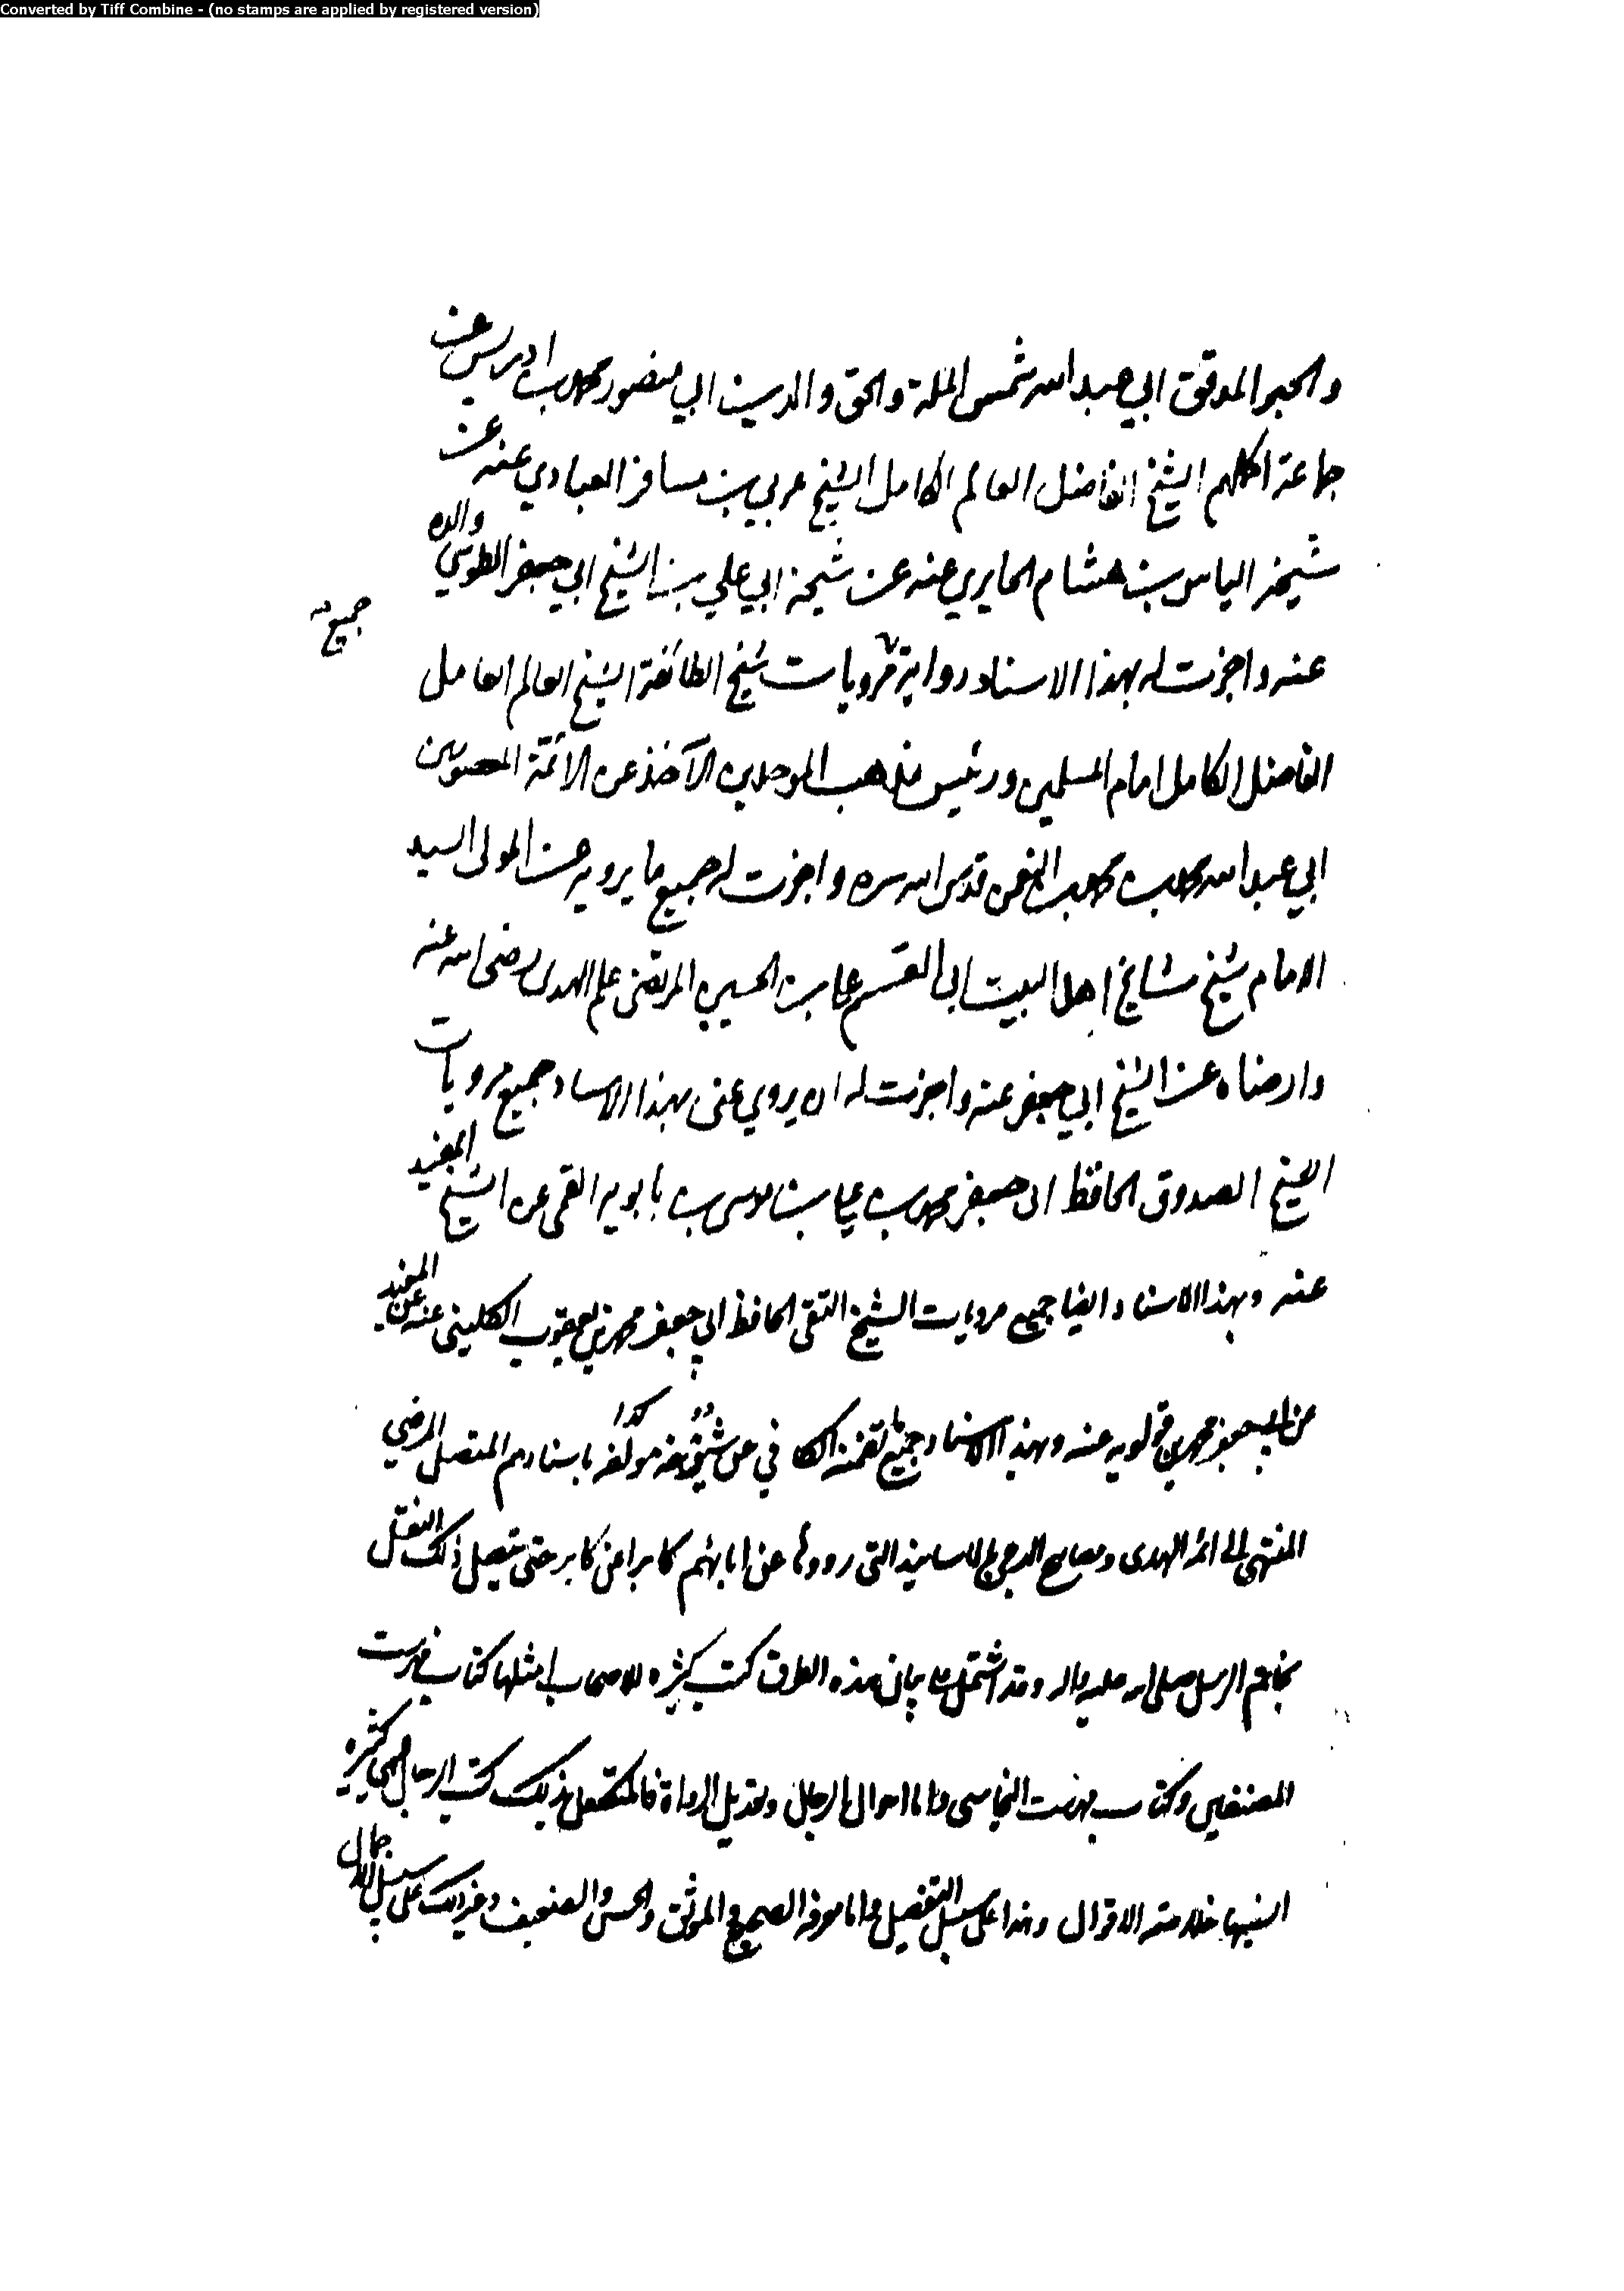 Converted by Tiff Combine - (no stamps are applied by registered version)
والحبر الموفق ابي عبد الله شمس الملة والحق والدين ابي منصور محمد بن ادريس عن
جماعة اكملهم الشيخ الفاضل العالم الكامل الشيخ عربي بن مسافر العبادي عنه عن
شيخه الياس بن هشام الحايري عنه عن شيخه ابي علي بن الشيخ ابي جعفر الطوسي والده
جميع
عنه واجزت له بهذا الاسناد رواية مرويات شيخ الطائفة الشيخ العالم العامل
الفاضل الكامل امام المسلمين ورئيس مذهب الموحدين الآخذ عن الائمة المعصومين
ابي عبد الله محمد بن محمد بن النعمن قدس الله سره واجزت له جميع ما يرويه عن المولى السيد
الامام شيخ مشايخ اهل البيت ابي القسم علي بن الحسين المرتضى علم الهدى رضى الله عنه
وارضاه عن الشيخ ابي جعفر عنه واجزت له ان يروي عنى بهذا الاسناد جميع مرويات
الشيخ الصدوق الحافظ ابي جعفر محمد بن علي بن موسى بن بابويه القمي عن الشيخ المفيد
عنه وبهذا الاسناد ايضا جميع مرويات الشيخ التقى الحافظ ابي جعفر محمد بن يعقوب الكليني عنه عن المفيد
عن ابي جعفر محمد بن قولويه عنه وبهذا الاسناد جميع ما تضمنه الكافي عن مولفه كذا باسنادهم المتصل المرضي
المنتهى الى ائمة الهدى ومصابيح الدجى بالاسانيد التى رووها عن ابائهم كابرا عن كابر حتى يتصل ذلك النقل
بخاتم الرسل صلى الله عليه واله وقد اشتمل على بيان هذه الطرق كتب كثيرة للاصحاب امثلها كتاب فهرست
المصنفين وكتاب فهرست النجاسى واما احوال الرجال وتعديل الرواة فالمتكفل بذلك كتب الرجال فهي كثيرة
انبهها خلاصة الاقوال وهذا على سبيل التفصيل واما معرفة الصحيح والموثق والحسن والضعيف وغير ذلك على سبيل الاجمال